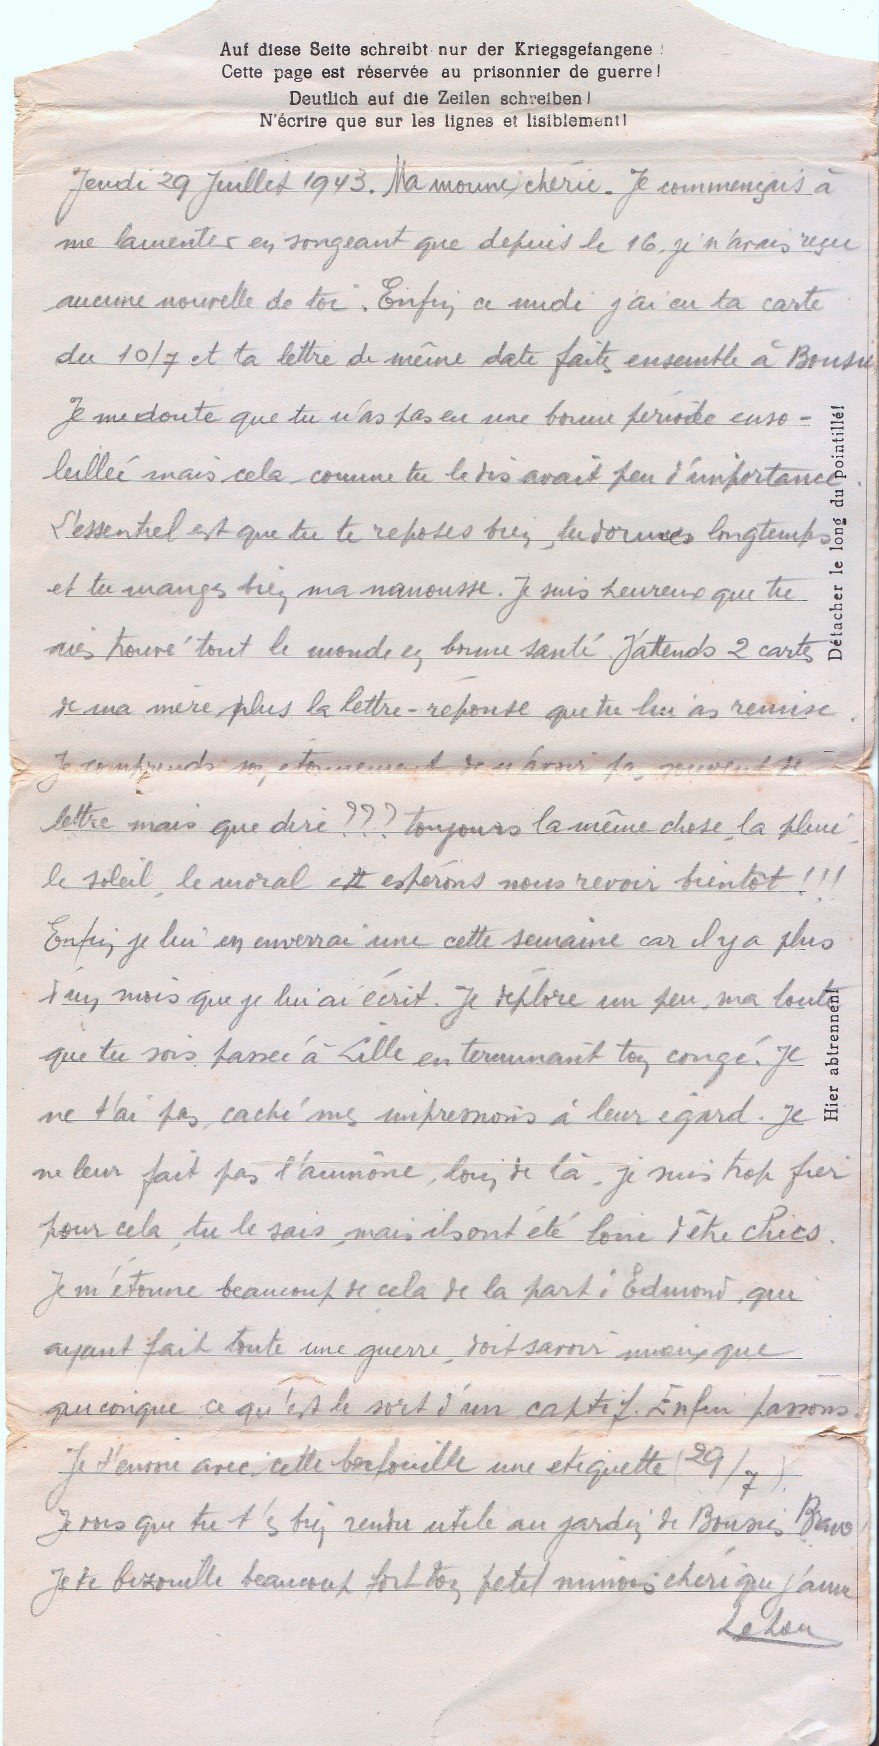 Auf diese Seite schreibt nur der Kriegsgefangene!
Cette page est réservée au prisonnier de guerre!
Deutlich auf die Zeilen schreiben!
N'écrire que sur les lignes et lisiblement!
Jeudi 29 Juillet 1943. Ma moune chérie. Je commençais à
me lamenter en songeant que depuis le 16 je n'avais reçu
aucune nouvelle de toi. Enfin ce midi j'ai eu ta carte
du 10/7 et ta lettre de même date faites ensemble à Bousies
Je me doute que tu n'as pas eu une bonne période enso-
leillée mais cela comme tu le dis avait peu d'importance.
L'essentiel est que tu te reposes bien, tu dormes longtemps
et tu manges bien ma nanousse. Je suis heureux que tu
aies trouvé tout le monde en bonne santé. J'attends 2 cartes
de ma mère plus la lettre-réponse que tu lui as remise.
Je comprends son étonnement de n'avoir pas souvent de
lettre mais que dire ??? toujours la même chose, la pluie,
le soleil, le moral et espérons nous revoir bientôt!!!
Enfin je lui en enverrai une cette semaine car il y a plus
d'un mois que je lui ai écrit. Je déplore un peu, ma loute
que tu sois passée à Lille en terminant ton congé. Je
ne t'ai pas caché mes impressions à leur égard. Je
ne leur fait pas l'aumône, loin de là, je suis trop fier
pour cela, tu le sais, mais ils ont été loin d'être chics.
Je m'étonne beaucoup de cela de la part d'Edmond, qui
ayant fait toute une guerre, doit savoir mieux que
quiconque ce qu'est le sort d'un captif. Enfin passons.
Je t'envoie avec cette bafouille une etiquette (29/7).
Je vois que tu t'es bien rendu utile au jardin de Bousies Bravo!
Je te bizouille beaucoup fort ton petit minois chéri que j'aime
Détacher le long du pointillé!
Hier abtrennen!